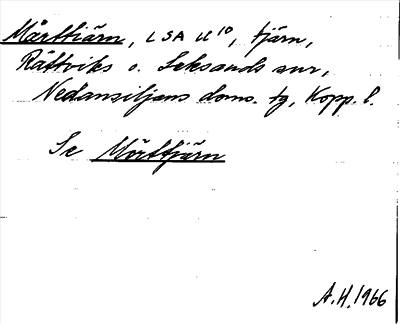 Mårttjärn, LSA U10, tjärn,
Rättviks o. Leksands snr,
Nedansiljans doms. tg, Kopp. l.
Se Mörttjärn
A.H. 1966